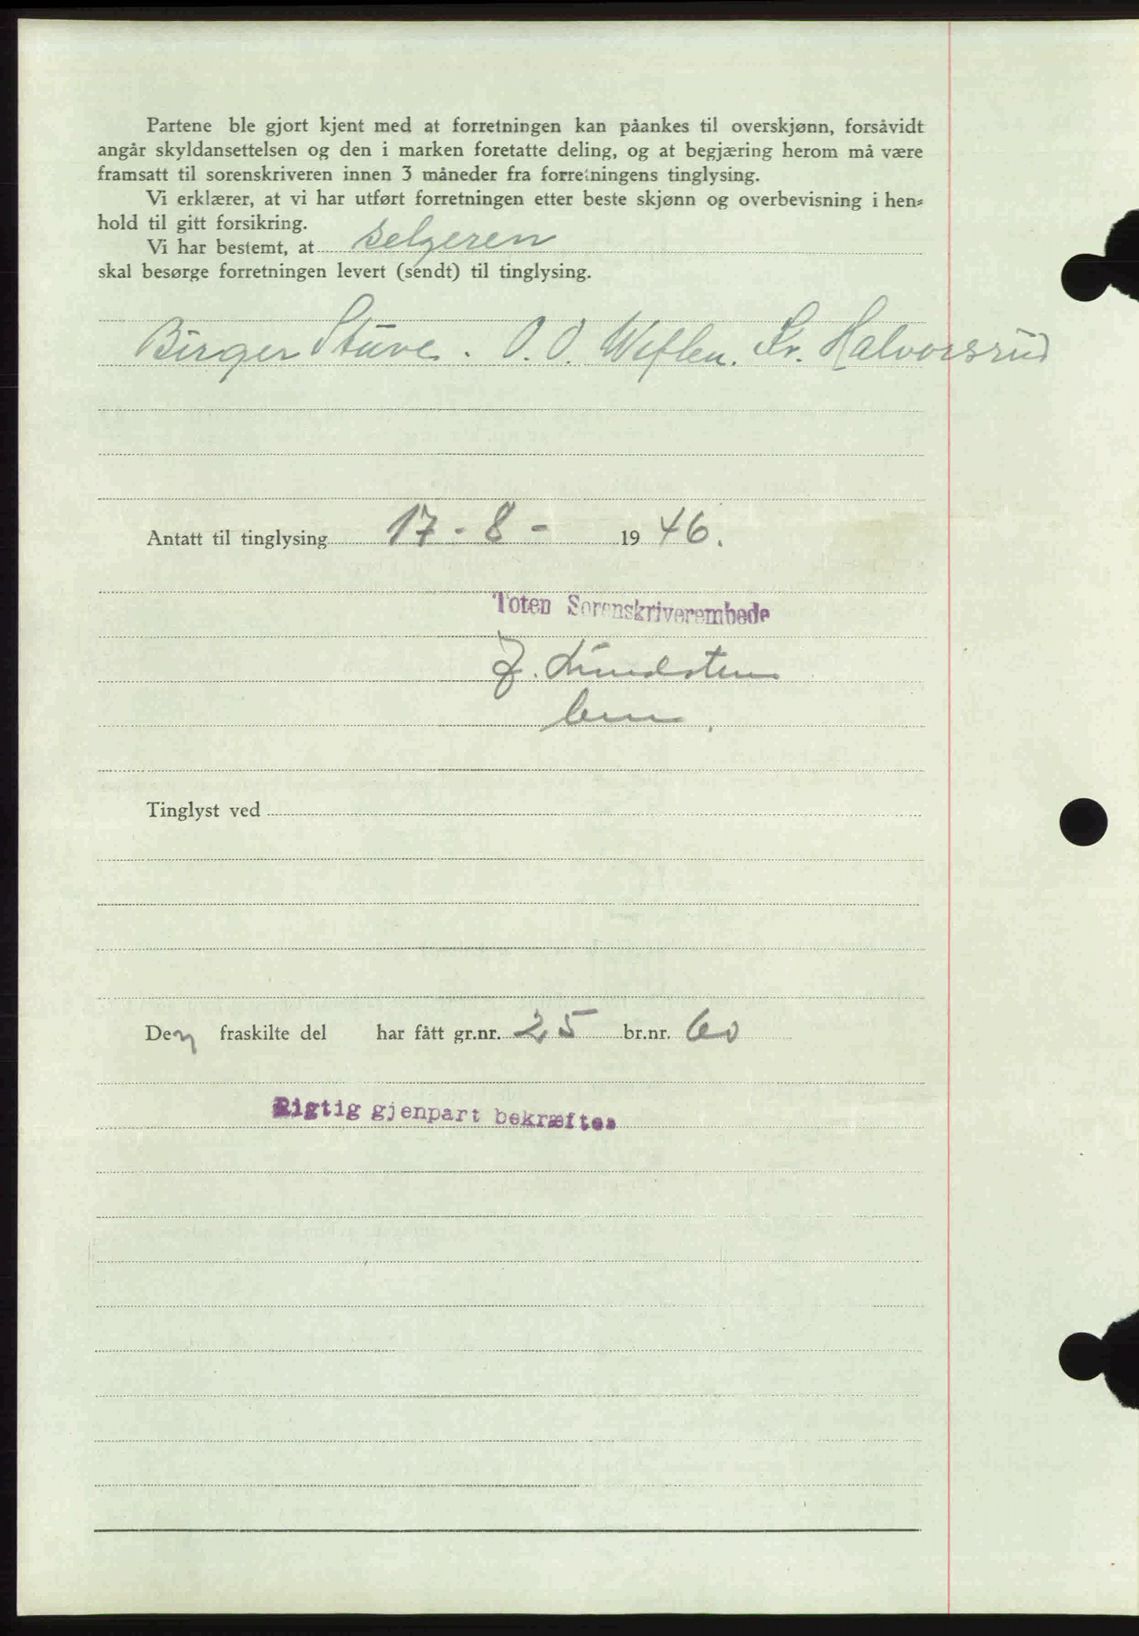 Partene ble gjort kjent med at forretningen kan påankes til overskjønn, forsåvidt
angår skyldansettelsen og den i marken foretatte deling, og at begjæring herom må være
framsatt til sorenskriveren innen 3 måneder fra forretningens tinglysing.
Vi erklærer, at vi har utført forretningen etter beste skjønn og overbevisning i hen-
hold til gitt forsikring.
Vi har bestemt, at selgeren
skal besørge forretningen levert (sendt) til tinglysing.
Birger Stuve. O. O. Weflen. Kr. Halvorsrud
Antatt til tinglysing 17 - 8 - 1946.
Toten Sorenskriverembede
J. Lundsten
Tinglyst ved
Den fraskilte del har fått gr.nr. 25 br.nr. 60
Rigtig gjenpart bekræftes